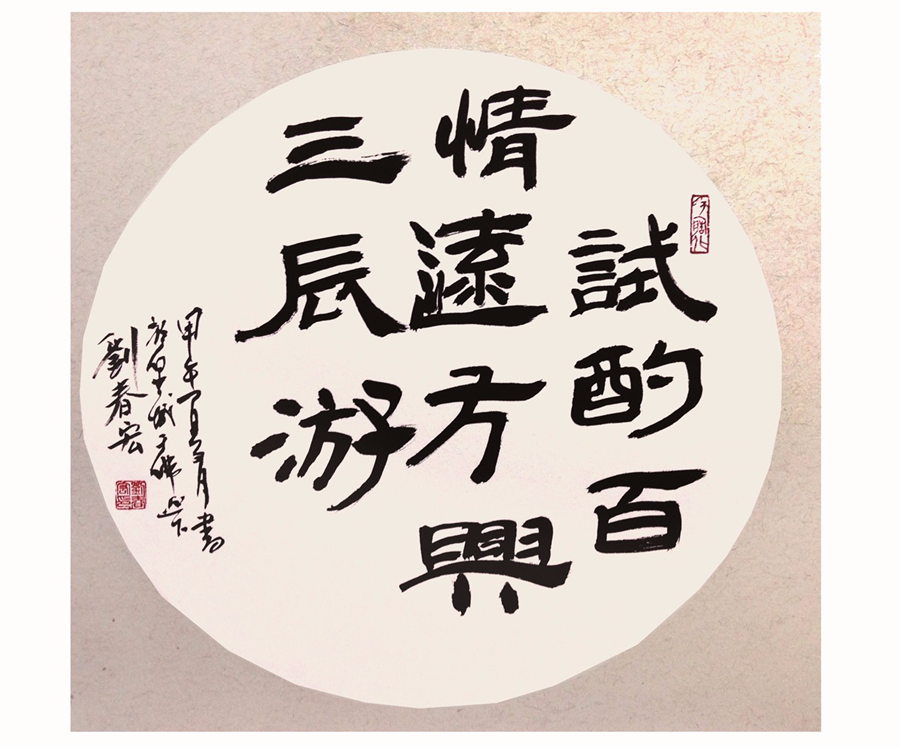 試酌百
情遠方興
三辰游
甲午 月書
劉春宏